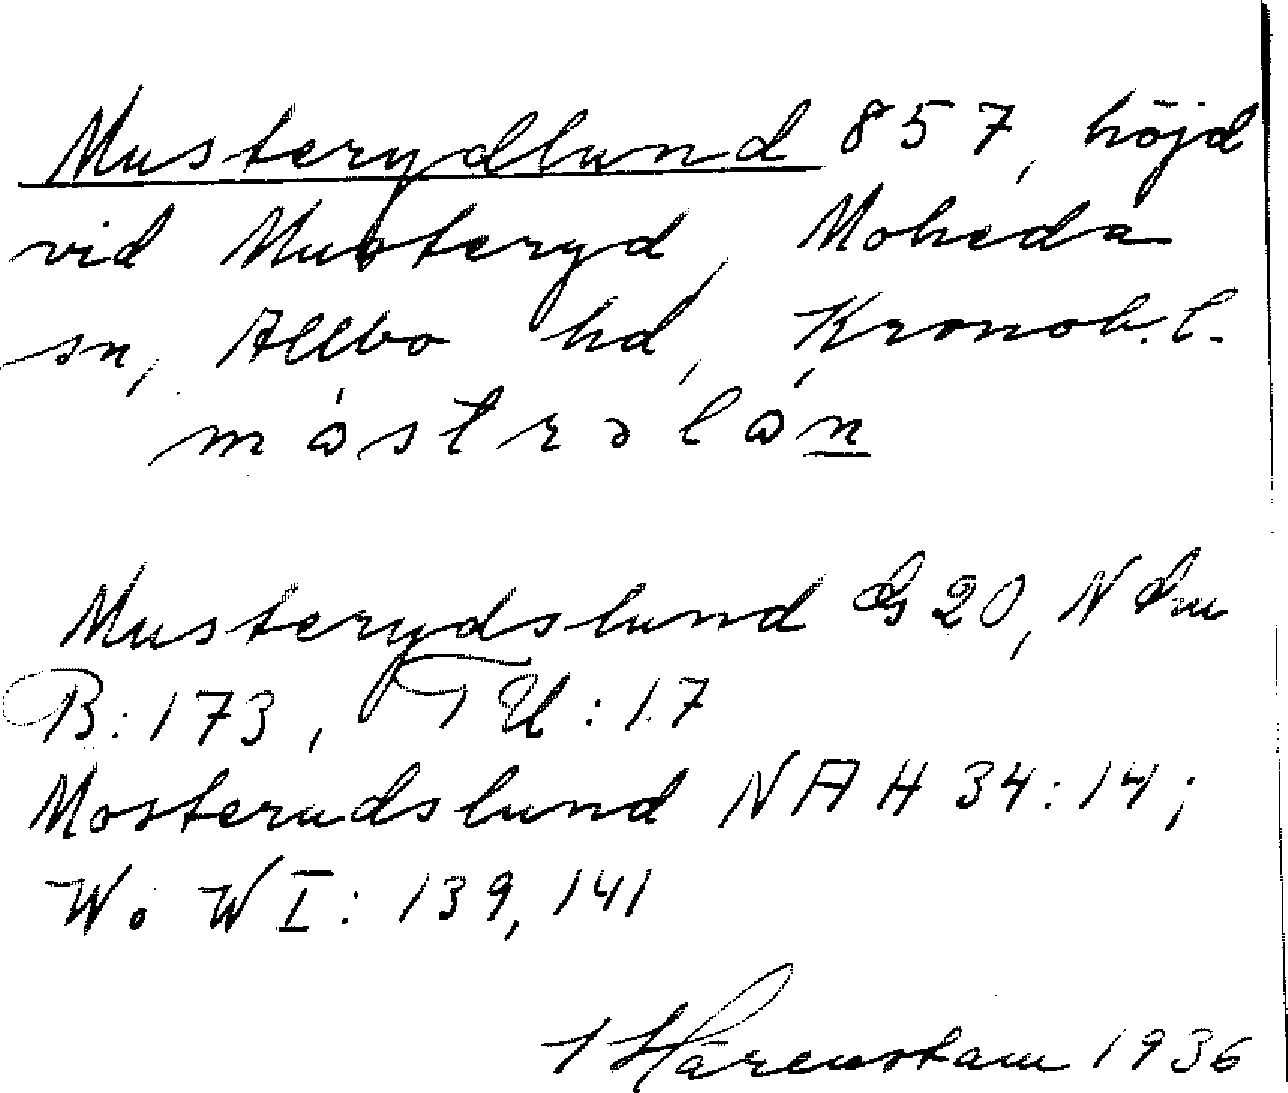 Musterydlund 857, höjd
vid Musteryd, Moheda
sn, Allbo hd, Kronob. l.
Musterydslund G 20, N
B: 173, TU: 17
Mosterudslund NAH 34: 14;
WoW I: 139, 141
Härenstam 1936